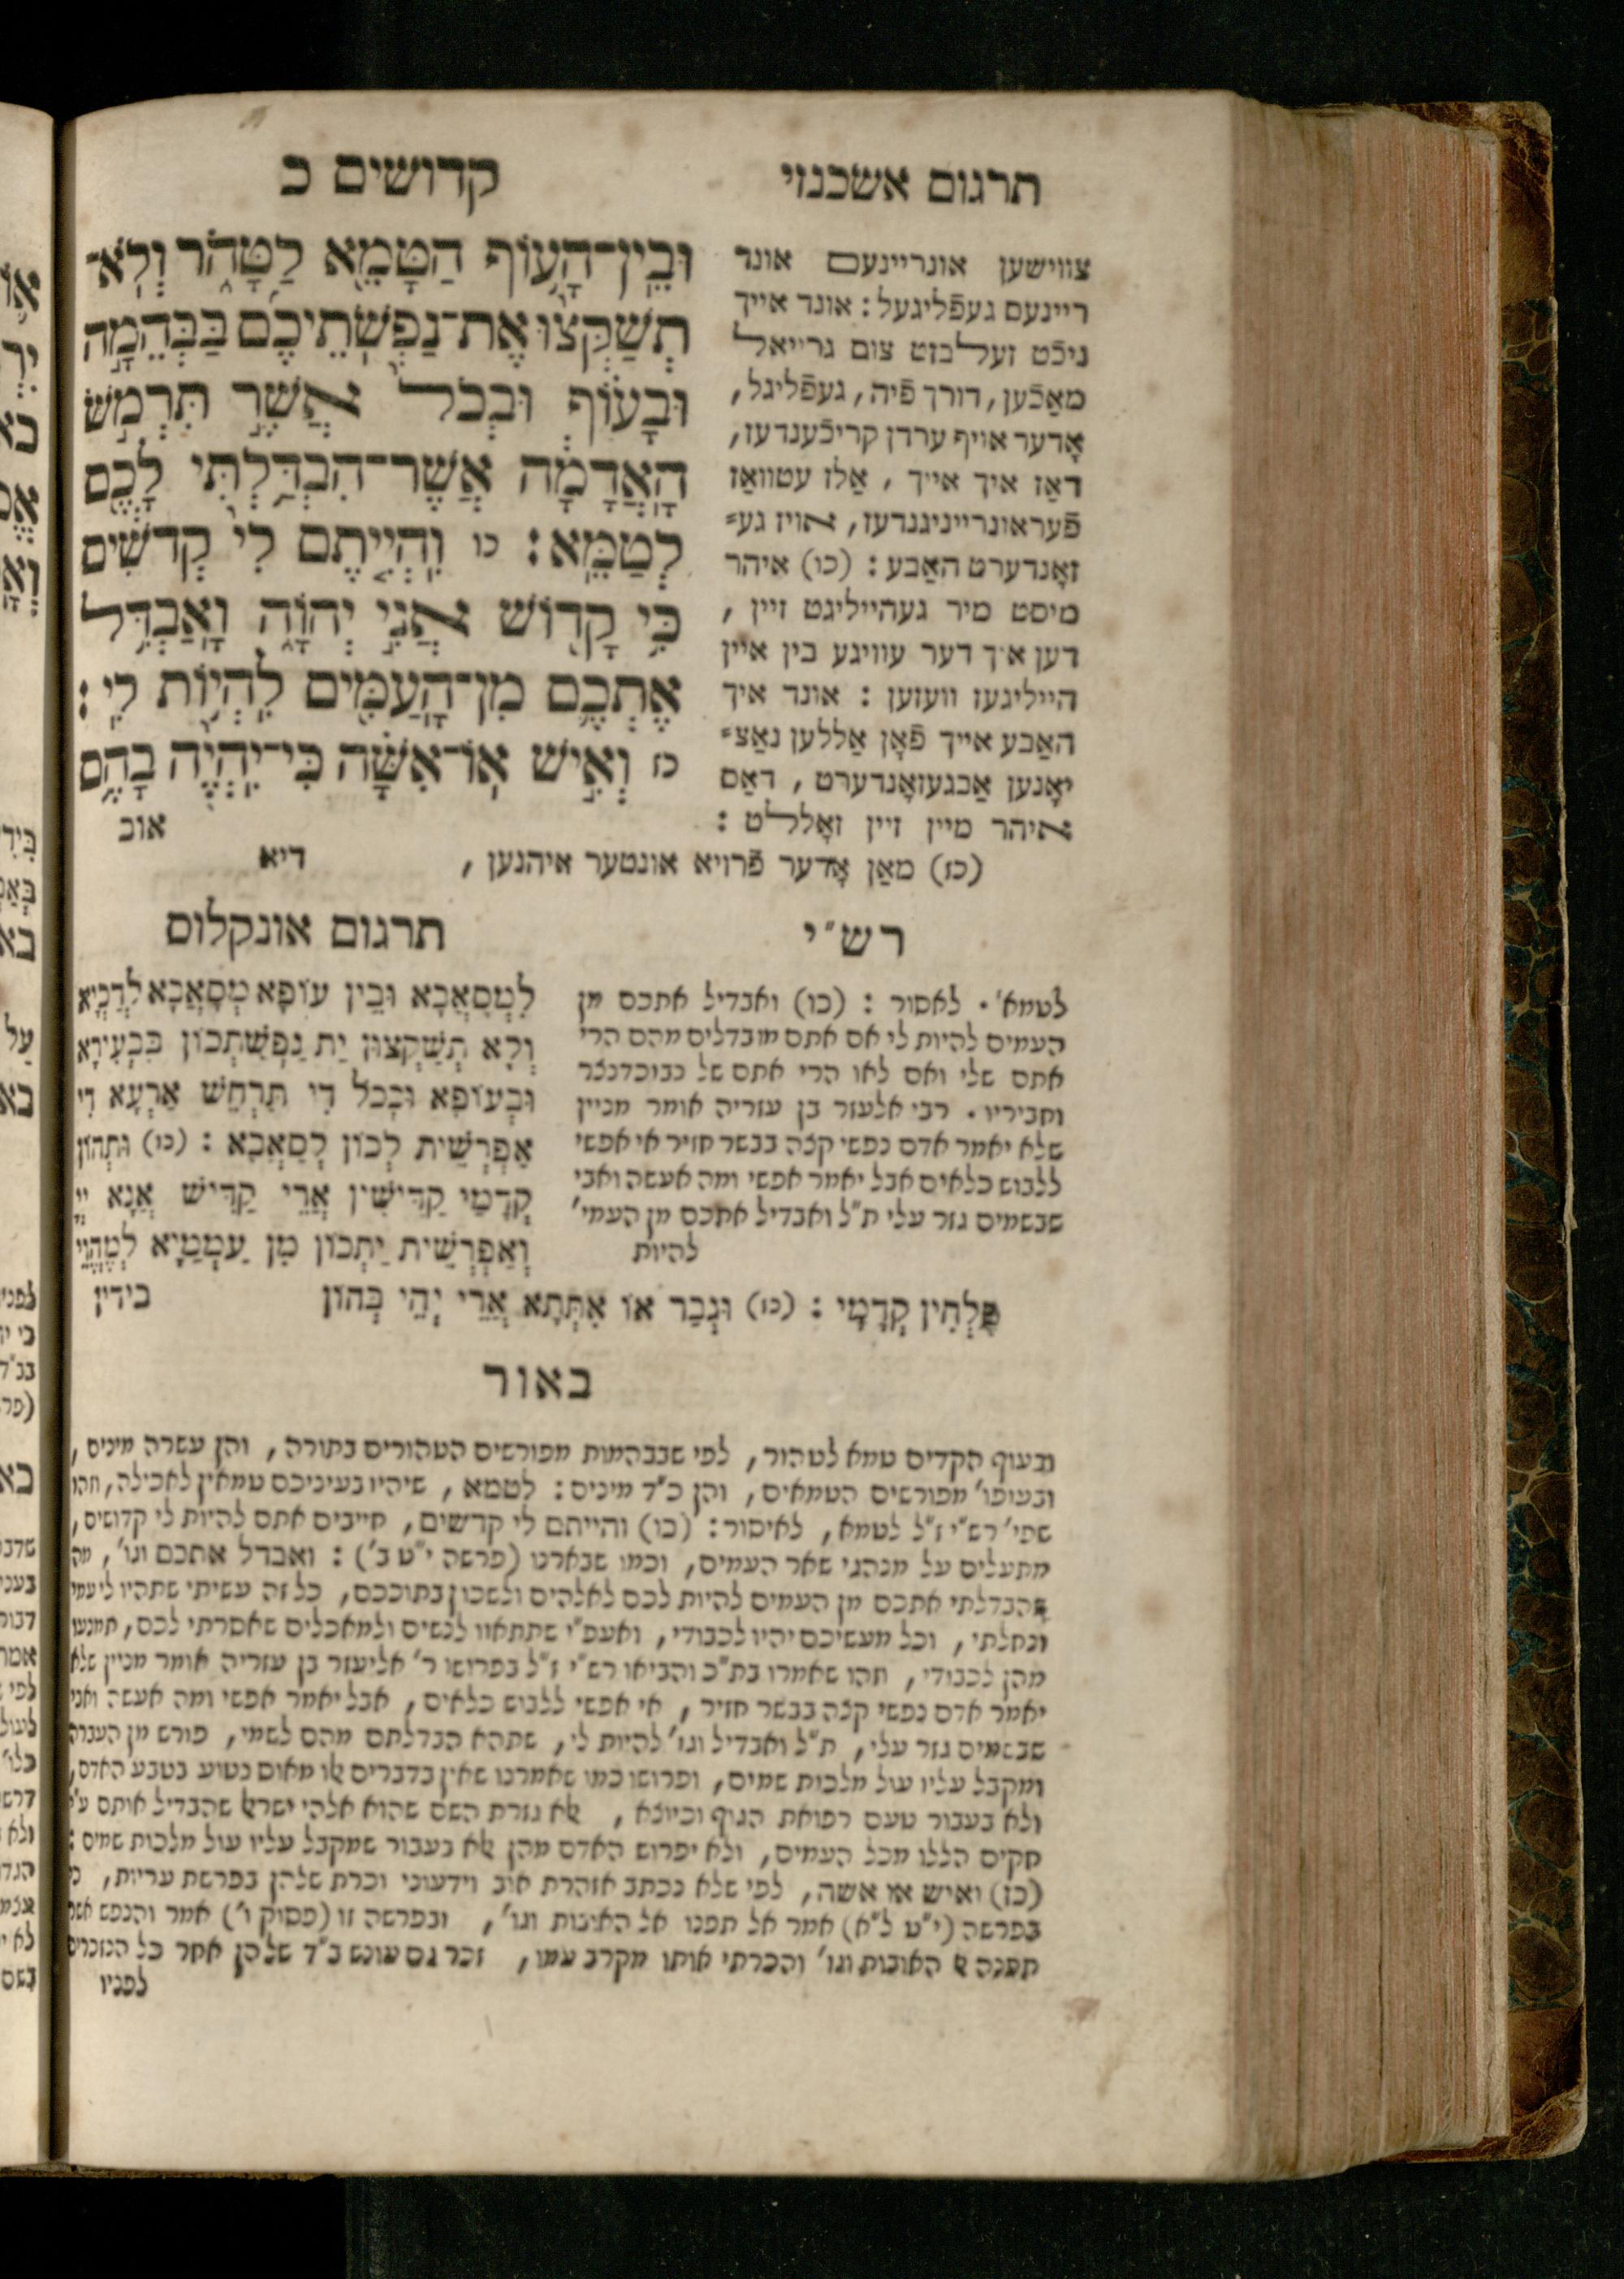 תרגום אשכנזי
קדושים כ
וּבֵין־הָעוֹף הַטָּמֵא לַטָּהֹר וְלֹא־
תְשַׁקְּצוּ אֶת־נַפְשֹׁתֵיכֶם בַּבְּהֵמָה
וּבָעוֹף וּבְכֹל אֲשֶׁר תִּרְמֹשׂ
הָאֲדָמָה אֲשֶׁר־הִבְדַּלְתִּי לָכֶם
לְטַמֵּא׃ כו וִהְיִיתֶם לִי קְדֹשִׁים
כִּי קָדוֹשׁ אֲנִי יְהוָֹה וָאַבְדִּל
אֶתְכֶם מִן־הָעַמִּים לִהְיוֹת לִי׃
כז וְאִישׁ אוֹ־אִשָּׁה כִּי־יִהְיֶה בָהֶם
אוב
צווישען אונריינעם אונד
ריינעם געפֿליגעל: אונד אייך
ניכֿט זעלבזט צום גרייאל
מאַכֿען, דורך פֿיה, געפֿליגל,
אָדער אויף ערדן קריכֿענדעז,
דאַז איך אייך, אַלז עטוואַז
פֿעראונרייניגנדעז, אויז גע=
זאָנדערט האַבע: (כו) איהר
מיסט מיר געהייליגט זיין,
דען איך דער עוויגע בין איין
הייליגעז וועזען: אונד איך
האַבע אייך פֿאָן אַללען נאַצ=
יאָנען אַבגעזאָנדערט, דאַס
איהר מיין זיין זאָללט:
(כז) מאַן אָדער פֿרויא אונטער איהנען,
דיא
רש"י
לטמא'. לאסור: (כו) ואבדיל אתכם מן
העמים להיות לי אם אתם מובדלים מהם הרי
אתם שלי ואם לאו הרי אתם של נבוכדנצר
וחביריו. רבי אלעזר בן עזריה אומר מניין
שלא יאמר אדם נפשי קצה בבשר חזיר אי אפשי
ללבוש כלאים אבל יאמר אפשי ומה אעשה ואבי
שבשמים גזר עלי ת"ל ואבדיל אתכם מן העמי'
להיות
תרגום אונקלוס
לִמְסָאֲבָא וּבֵין עוֹפָא מְסָאֲבָא לְדַכְיָא
וְלָא תְשַׁקְצוּן יַת נַפְשַׁתְכוֹן בִּבְעִירָא
וּבְעוֹפָא וּבְכֹל דִּי תַרְחֵשׁ אַרְעָא דִּי
אַפְרָשִׁית לְכוֹן לְסַאֲבָא: (כו) וּתְהוֹן
קֳדָמַי קַדִּישִׁין אֲרֵי קַדִּישׁ אֲנָא יְיָ
וְאַפְרָשִׁית יַתְכוֹן מִן עַמְמַיָּא לְמֶהֱוֵי
פָּלְחִין קֳדָמָי: (כז) וּגְבַר אוֹ אִתְּתָא אֲרֵי יְהֵי בְהוֹן
בידין
באור
ובעוף הקדים טמא לטהור, לפי שבבהמות מפורשים הטהורים בתורה, והן עשרה מינים,
ובעופו' מפורשים הטמאים, והן כ"ד מינים: לטמא, שיהיו בעיניכם טמאין לאכילה, וזהו
שפי' רש"י ז"ל לטמא, לאיסור: (כו) והייתם לי קדשים, חייבים אתם להיות לי קדושים,
מתעלים על מנהגי שאר העמים, וכמו שבארנו (פרשה י"ט ב'): ואבדל אתכם וגו', מה
שהבדלתי אתכם מן העמים להיות לכם לאלהים ולשכון בתוככם, כל זה עשיתי שתהיו לי עמי
ונחלתי, וכל מעשיכם יהיו לכבודי, ואעפ"י שתתאוו לנשים ולמאכלים שאסרתי לכם, תמנעו
מהן לכבודי, וזהו שאמרו בת"כ והביאו רש"י ז"ל בפרושו ר' אליעזר בן עזריה אומר מניין שלא
יאמר אדם נפשי קצה בבשר חזיר, אי אפשי ללבוש כלאים, אבל יאמר אפשי ומה אעשה ואבי
שבשמים גזר עלי, ת"ל ואבדיל וגו' להיות לי, שתהא הבדלתם מהם לשמי, פורש מן העברה
ומקבל עליו עול מלכות שמים, ופרושו כמו שאמרנו שאין בדברים אלו מאום נטוע בטבע האדם,
ולא בעבור טעם רפואת הגוף וכיוצא, אלא גזרת השם שהוא אלהי ישראל שהבדיל אותם ע"י
חקים הללו מכל העמים, ולא יפרוש האדם מהן אלא בעבור שמקבל עליו עול מלכות שמים:
(כז) ואיש או אשה, לפי שלא נכתב אזהרת אוב וידעוני וכרת שלהן בפרשת עריות,
בפרשה (י"ט ל"א) אמר אל תפנו אל האובות וגו', ובפרשה זו (פסוק ו') אמר והנפש אשר
תפנה אל האובות וגו' והכרתי אותו מקרב עמו, זכר גם עונש ב"ד שלהן אחר כל הנזכרים
לפניו